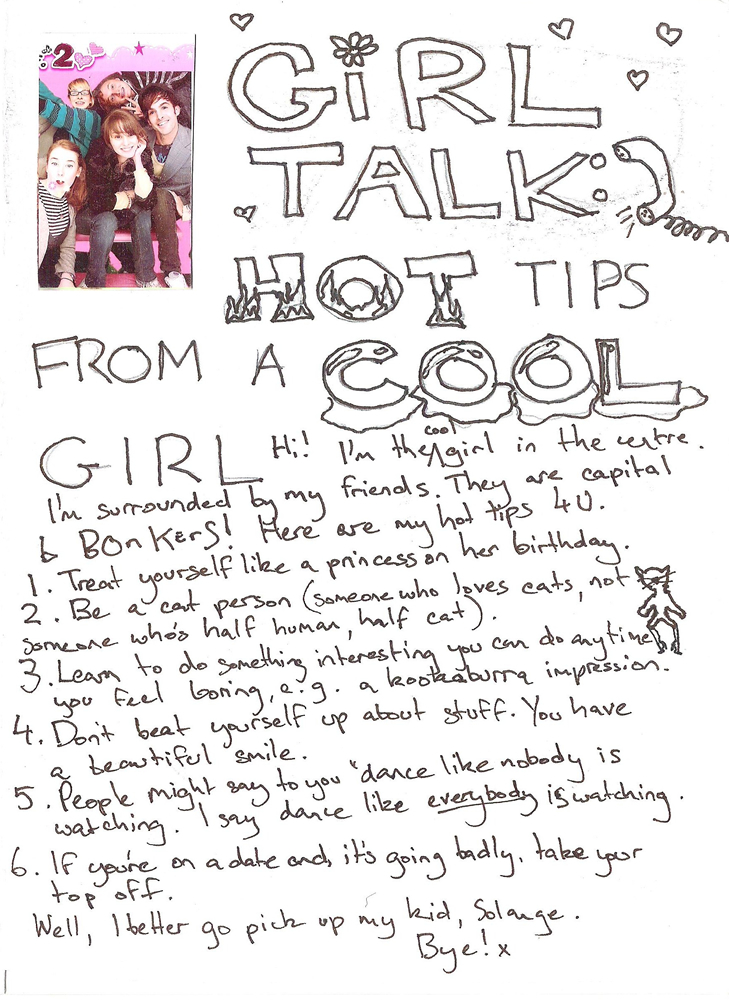 2
GIRL
TALK:
HOT TIPS
FROM A COOL
GIRL Hi! I'm the cool girl in the centre.
I'm surrounded by my friends. They are capital
b BONKERS! Here are my hot tips 4U.
1. Treat yourself like a princess on her birthday.
2. Be a cat person (someone who loves cats, not
someone who's half human, half cat).
3. Learn to do something interesting you can do anytime
you feel boring, e.g. a kookaburra impression.
4. Don't beat yourself up about stuff. You have
a beautiful smile.
5. People might say to you "dance like nobody is
watching. I say dance like everybody is watching.
6. If you're on a date and it's going badly, take your
top off.
Well, I better go pick up my kid, Solange.
Bye! x